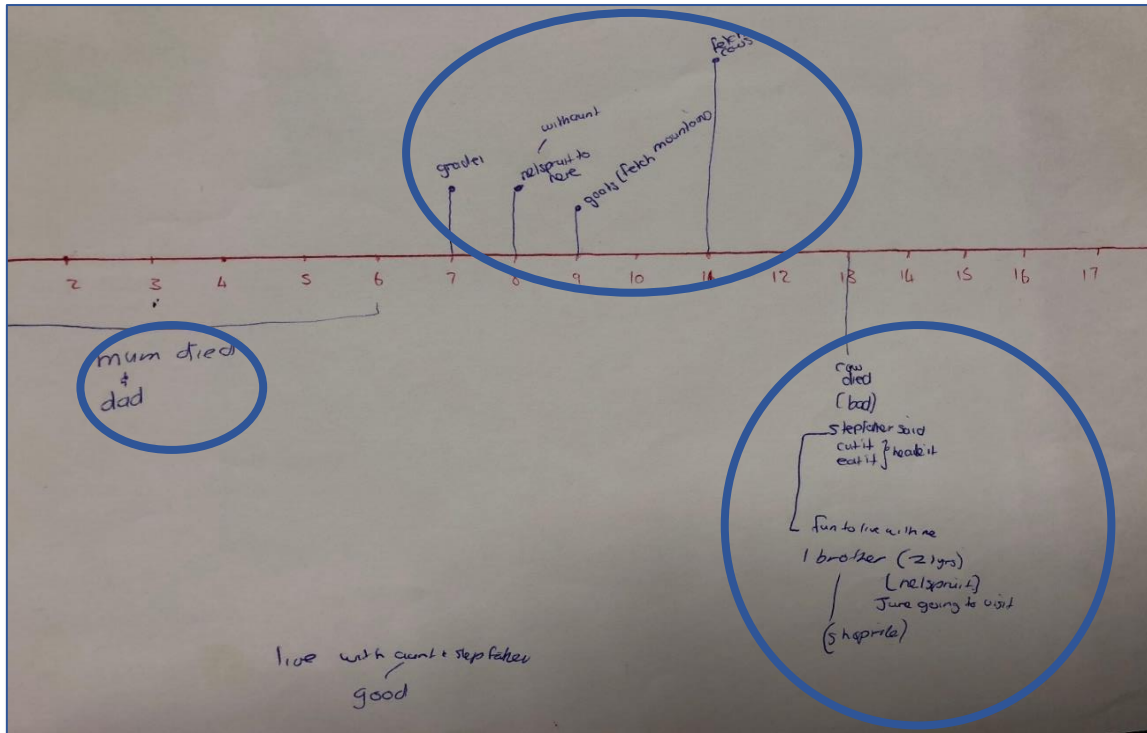 fetch
cows
with aunt
grade 1
nelspruit to
here
goats (fetch mountain)
2 3 4 5 6 7 8 9 10 11 12 13 14 15 16 17
mum died
&
dad
cow
died
(bad)
stepfather said
cut it
eat it
fun to live with me
1 brother (21yrs)
[nelspruit]
June going to visit
(shoprite)
live with aunt & stepfather
good